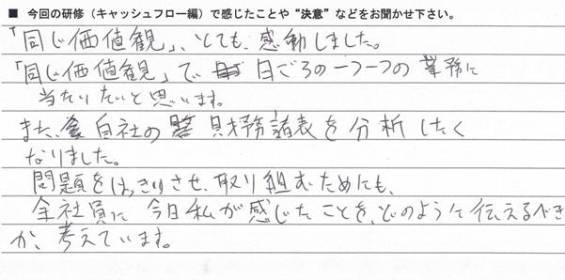 ■ 今回の研修（キャッシュフロー編）で感じたことや“決意”などをお聞かせ下さい。
「同じ価値観」、とても、感動しました。
「同じ価値観」で、日ごろの一つ一つの業務に
当たりたいと思います。
また、自社の財務諸表を分析したく
なりました。
問題をはっきりさせ、取り組むためにも、
全社員に今日私が感じたことを、どのように伝えるべき
か、考えています。